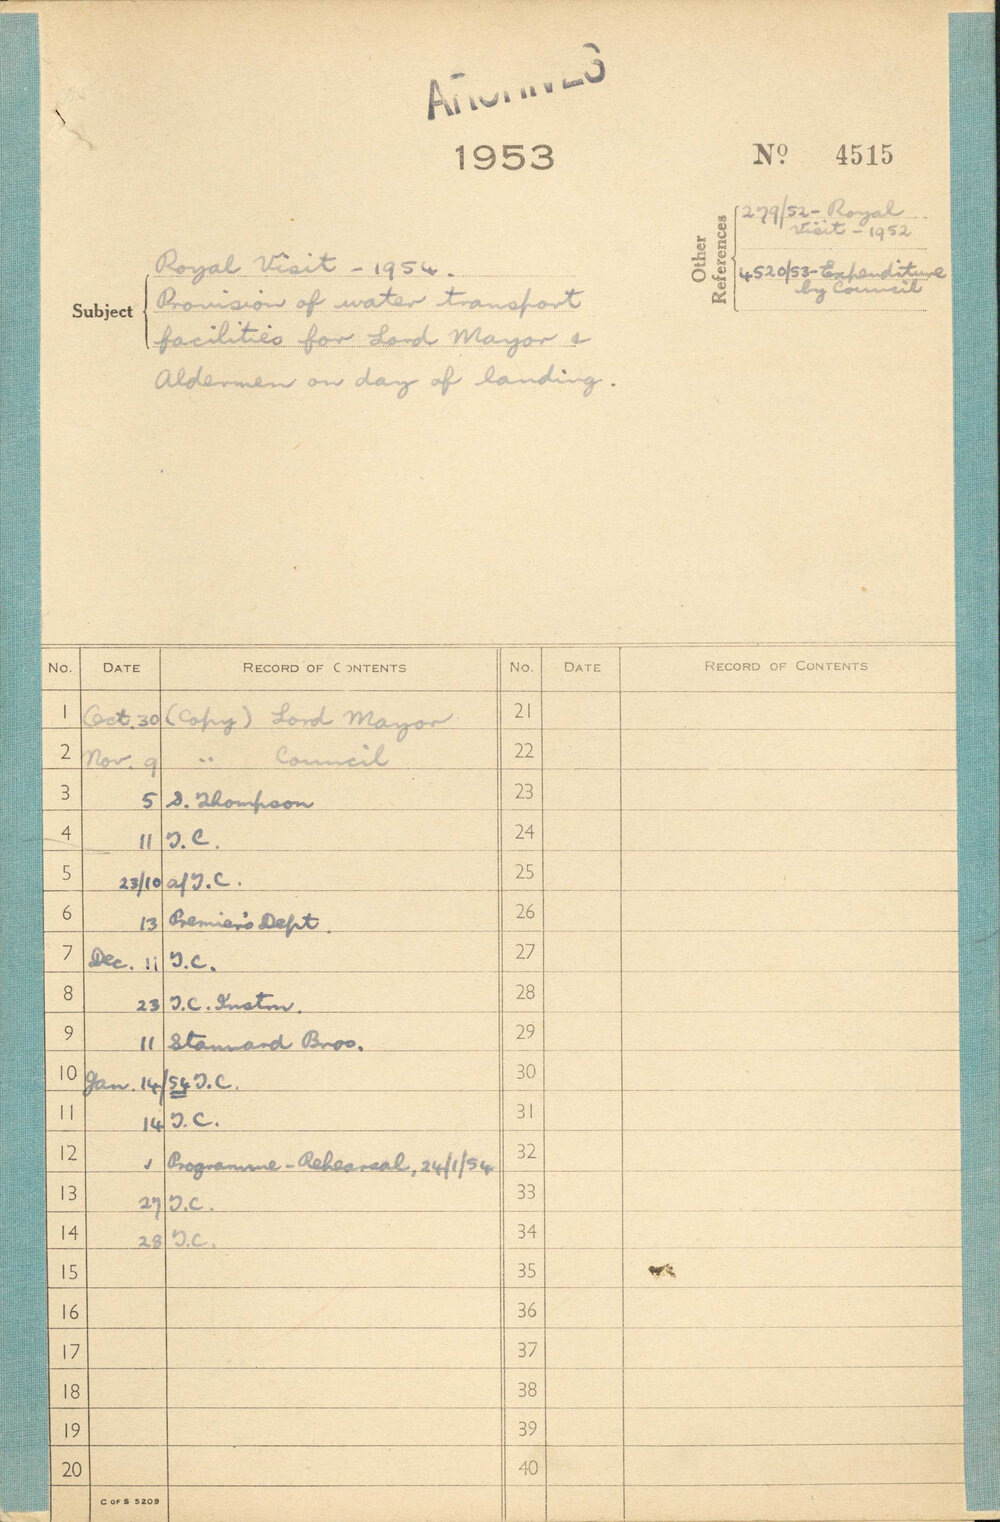 ARCHIVES
1953
No 4515
Other References
279/52 - Royal
Visit - 1952
4520/53 - Expenditure
by Council
Subject
Royal Visit - 1954.
Provision of water transport
facilities for Lord Mayor &
Aldermen on day of landing.
No. DATE RECORD OF CONTENTS No. DATE RECORD OF CONTENTS
1 Oct. 30 (Copy) Lord Mayor 21
2 Nov. 9 " Council 22
3 5 S. Thompson 23
4 11 T.C. 24
5 23/10 a/T.C. 25
6 13 Premier's Dept. 26
7 Dec. 11 T.C. 27
8 23 T.C. Instn. 28
9 11 Stannard Bros. 29
10 Jan. 14/54 T.C. 30
11 14 T.C. 31
12 Programme - Rehearsal, 24/1/54 32
13 27 T.C. 33
14 28 T.C. 34
15 35
16 36
17 37
18 38
19 39
20 40
C OF S 5209